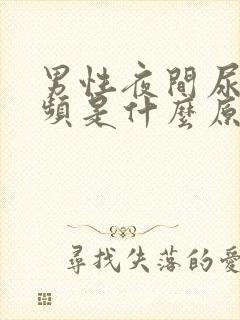 男性夜間尿
頻是什麼原
尋找失落的愛